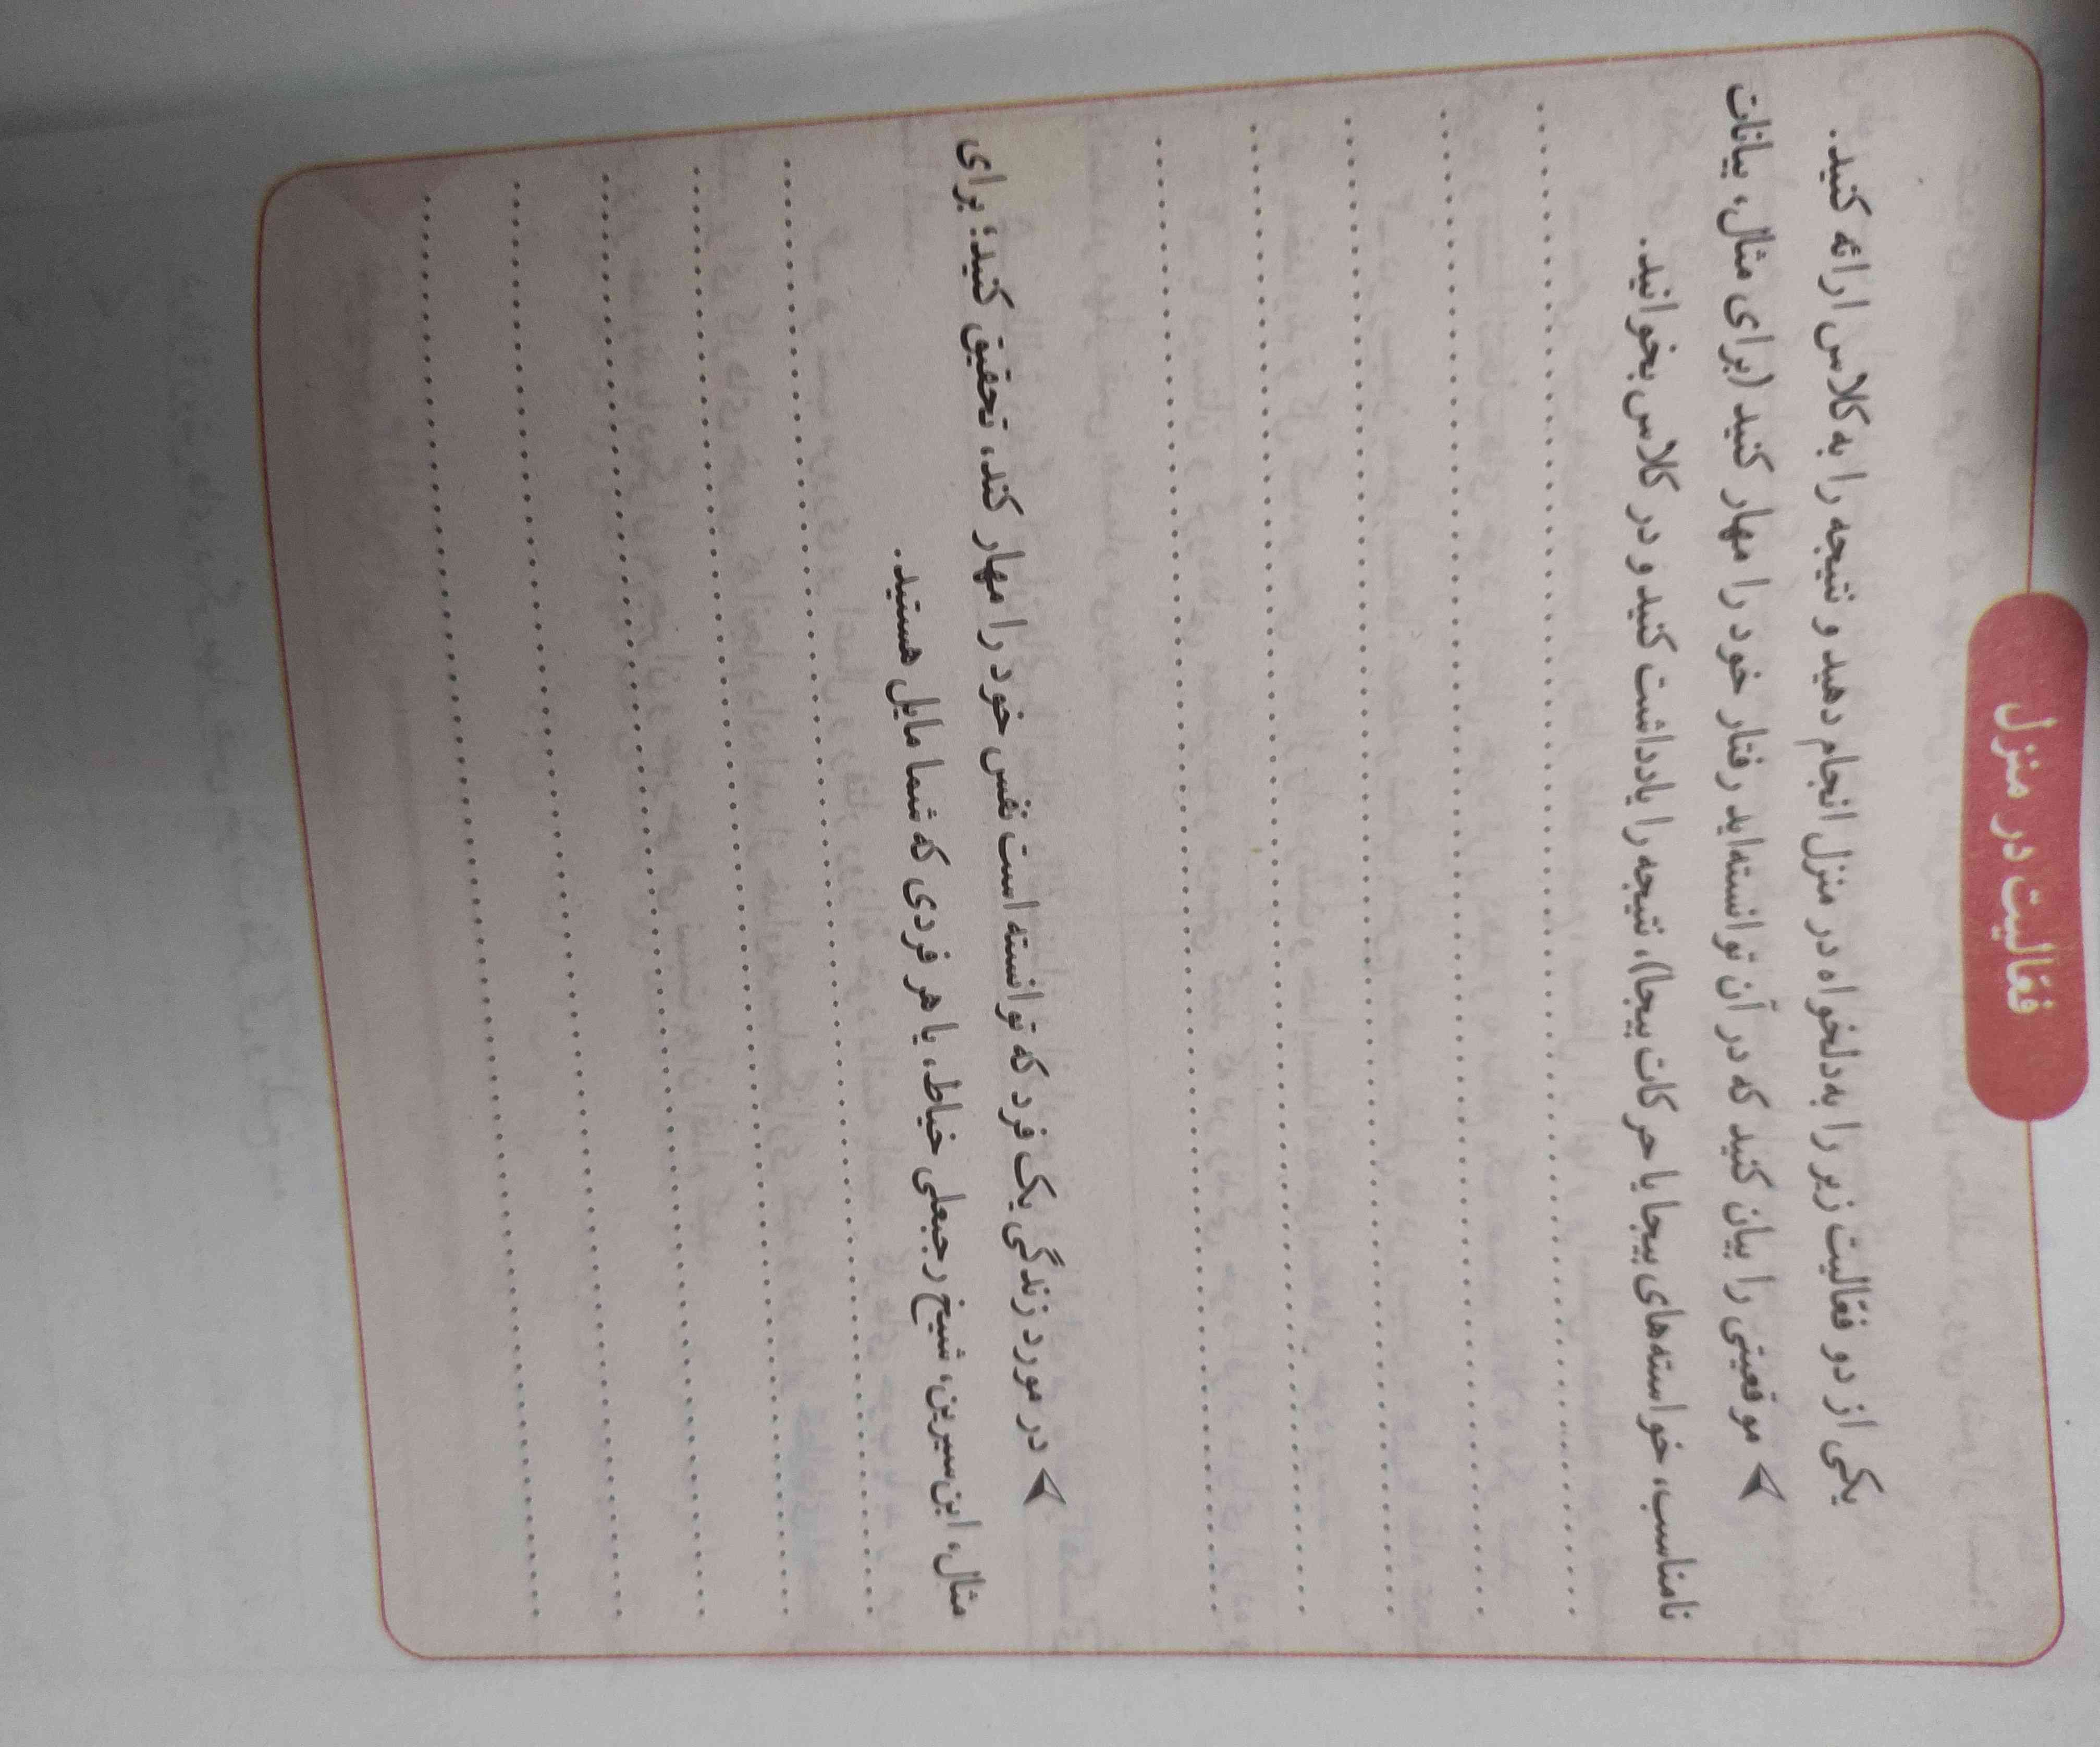 فعّالیت در منزل
یکی از دو فعّالیت زیر را به دلخواه در منزل انجام دهید و نتیجه را به کلاس ارائه کنید.
موقعیتی را بیان کنید که در آن توانسته‌اید رفتار خود را مهار کنید (برای مثال، بیانات
نامناسب، خواسته‌های بیجا یا حرکات بیجا)، نتیجه را یادداشت کنید و در کلاس بخوانید.
در مورد زندگی یک فرد که توانسته است نفس خود را مهار کند، تحقیق کنید؛ برای
مثال، ابن‌سیرین، شیخ رجبعلی خیاط، یا هر فردی که شما مایل هستید.